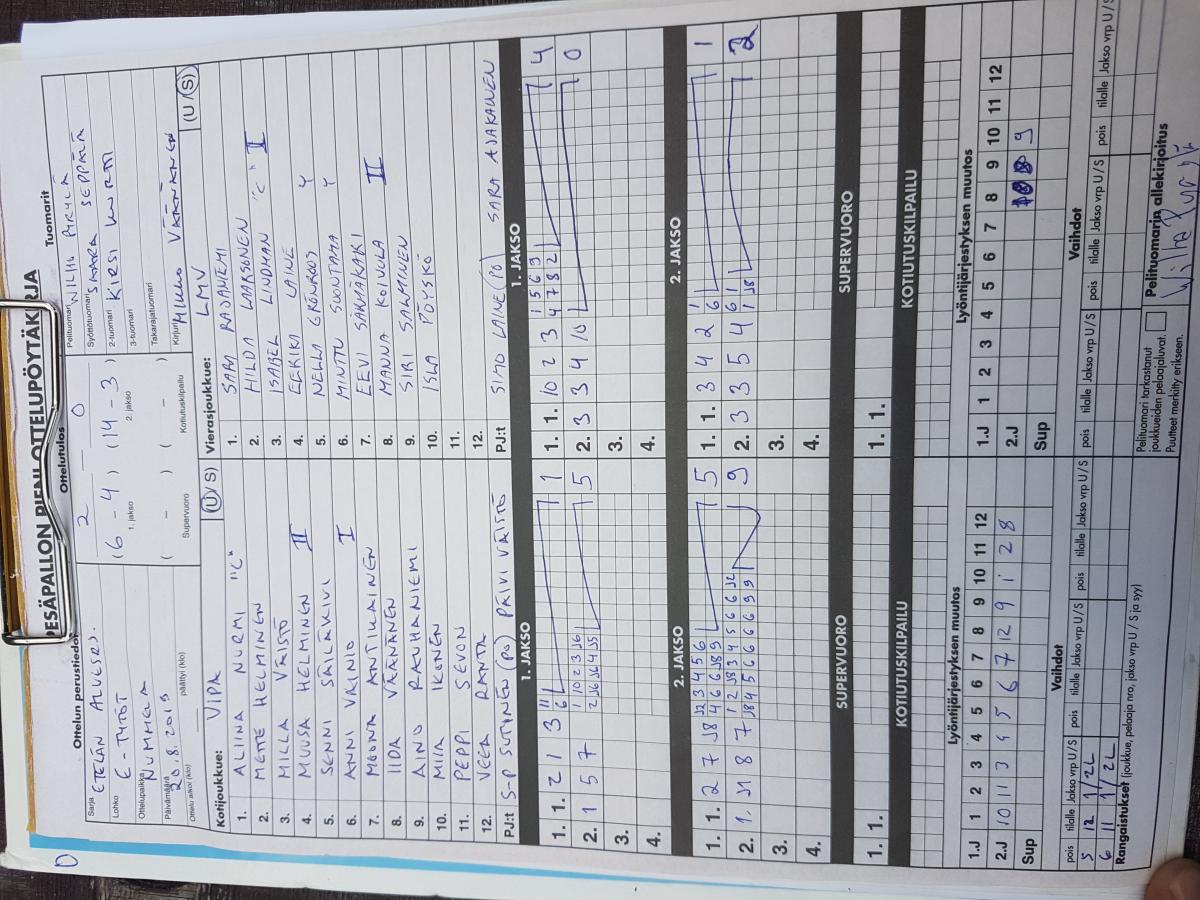 PESÄPALLON PIENI OTTELUPÖYTÄKIRJA
Ottelun perustiedot
Sarja ETELÄN ALUESRJ.
Lohko E-TYTÖT
Ottelupaikka NUMMELA
Päivämäärä 20.8.2019
Ottelu alkoi (klo) päättyi (klo)
Ottelutulos
2 — 0
(6 - 4) (14 - 3)
1. jakso 2. jakso
( - ) ( - )
Supervuoro Kotiutuskilpailu
Tuomarit
Pelituomari
Syöttötuomari SAARA SEPPÄLÄ
2-tuomari KIRSI
3-tuomari
Takarajatuomari
Kirjuri VÄÄNÄNEN
Kotijoukkue: VIPA (U/S)
1. ALIINA NURMI "C"
2. METTE HELMINEN
3. MILLA VÄISTÖ
4. MUUSA HELMINEN II
5. SENNI SÄILÄKIVI
6. ANNI VAINIO I
7. MOONA ANTIKAINEN
8. IIDA VÄÄNÄNEN
9. AINO RAUHANIEMI
10. MIIA IKONEN
11. PEPPI SEVON
12. VEERA RANTA
PJ:t S-P SUTINEN (PO) PÄIVI VÄISTÖ
Vierasjoukkue: LMV (U/S)
1. SARA RAJANIEMI
2. HILDA LAAKSONEN
3. ISABEL LINDMAN "C" I
4. EERIKA LAINE
5. NELLA GRÖNROOS Y
6. MINTTU SUONTAMA Y
7. EEVI SAKARAKÄKI
8. MANNA KOIVULA II
9. SIRI SARMINEN
10. ISLA PÖYSKÖ
11.
12.
PJ:t SIMO LAINE (PO) SARA AJAKAINEN
1. JAKSO
1. 1. 2 1 3 11 6 1
2. 1 5 7 5
3.
4.
1. JAKSO
1. 1. 10 2 3 4
2. 3 3 4 10 0
3.
4.
2. JAKSO
1. 1. 2 7 5
2. 9
3.
4.
2. JAKSO
1. 1. 3 4 2 1
2. 3 3 5 4 2
3.
4.
SUPERVUORO
1. 1.
SUPERVUORO
1. 1.
KOTIUTUSKILPAILU
KOTIUTUSKILPAILU
Lyöntijärjestyksen muutos
1.J 1 2 3 4 5 6 7 8 9 10 11 12
2.J 10 11 3 4 5 6 7 12 9 1 2 8
Sup
Lyöntijärjestyksen muutos
1.J 1 2 3 4 5 6 7 8 9 10 11 12
2.J 9
Sup
Vaihdot
pois tilalle Jakso vrp U/S pois tilalle Jakso vrp U/S pois tilalle Jakso vrp U/S
5 12 1/2L
6 11 1/2L
Vaihdot
pois tilalle Jakso vrp U/S pois tilalle Jakso vrp U/S pois tilalle Jakso vrp U/S
Rangaistukset (joukkue, pelaaja nro, jakso vrp U/S ja syy)
Pelituomari tarkastanut
joukkueiden pelaajaluvat.
Puutteet merkitty erikseen.
Pelituomarin allekirjoitus